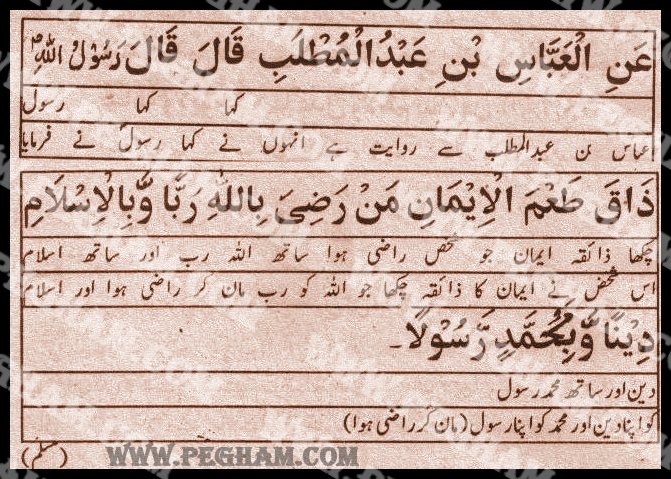 عَنِ الْعَبَّاسِ بْنِ عَبْدُالْمُطْلَبِ قَالَ قَالَ رَسُوْلُ اللّٰهِ ؐ
کہا کہا رسول
عباس بن عبدالمطلب سے روایت ہے انہوں نے کہا رسولؐ نے فرمایا
ذَاقَ طَعْمَ الْاِيْمَانِ مَنْ رَضِيَ بِاللّٰهِ رَبًّا وَّبِالْاِسْلَامِ
چکھا ذائقہ ایمان جو شخص راضی ہوا ساتھ اللہ رب اور ساتھ اسلام
اس شخص نے ایمان کا ذائقہ چکھا جو اللہ کو رب مان کر راضی ہوا اور اسلام
دِيْنًا وَّبِمُحَمَّدٍ رَّسُوْلًا۔
دین اور ساتھ محمد رسول
کو اپنا دین اور محمد کو اپنا رسول (مان کر راضی ہوا)
(مسلم)
WWW.PEGHAM.COM